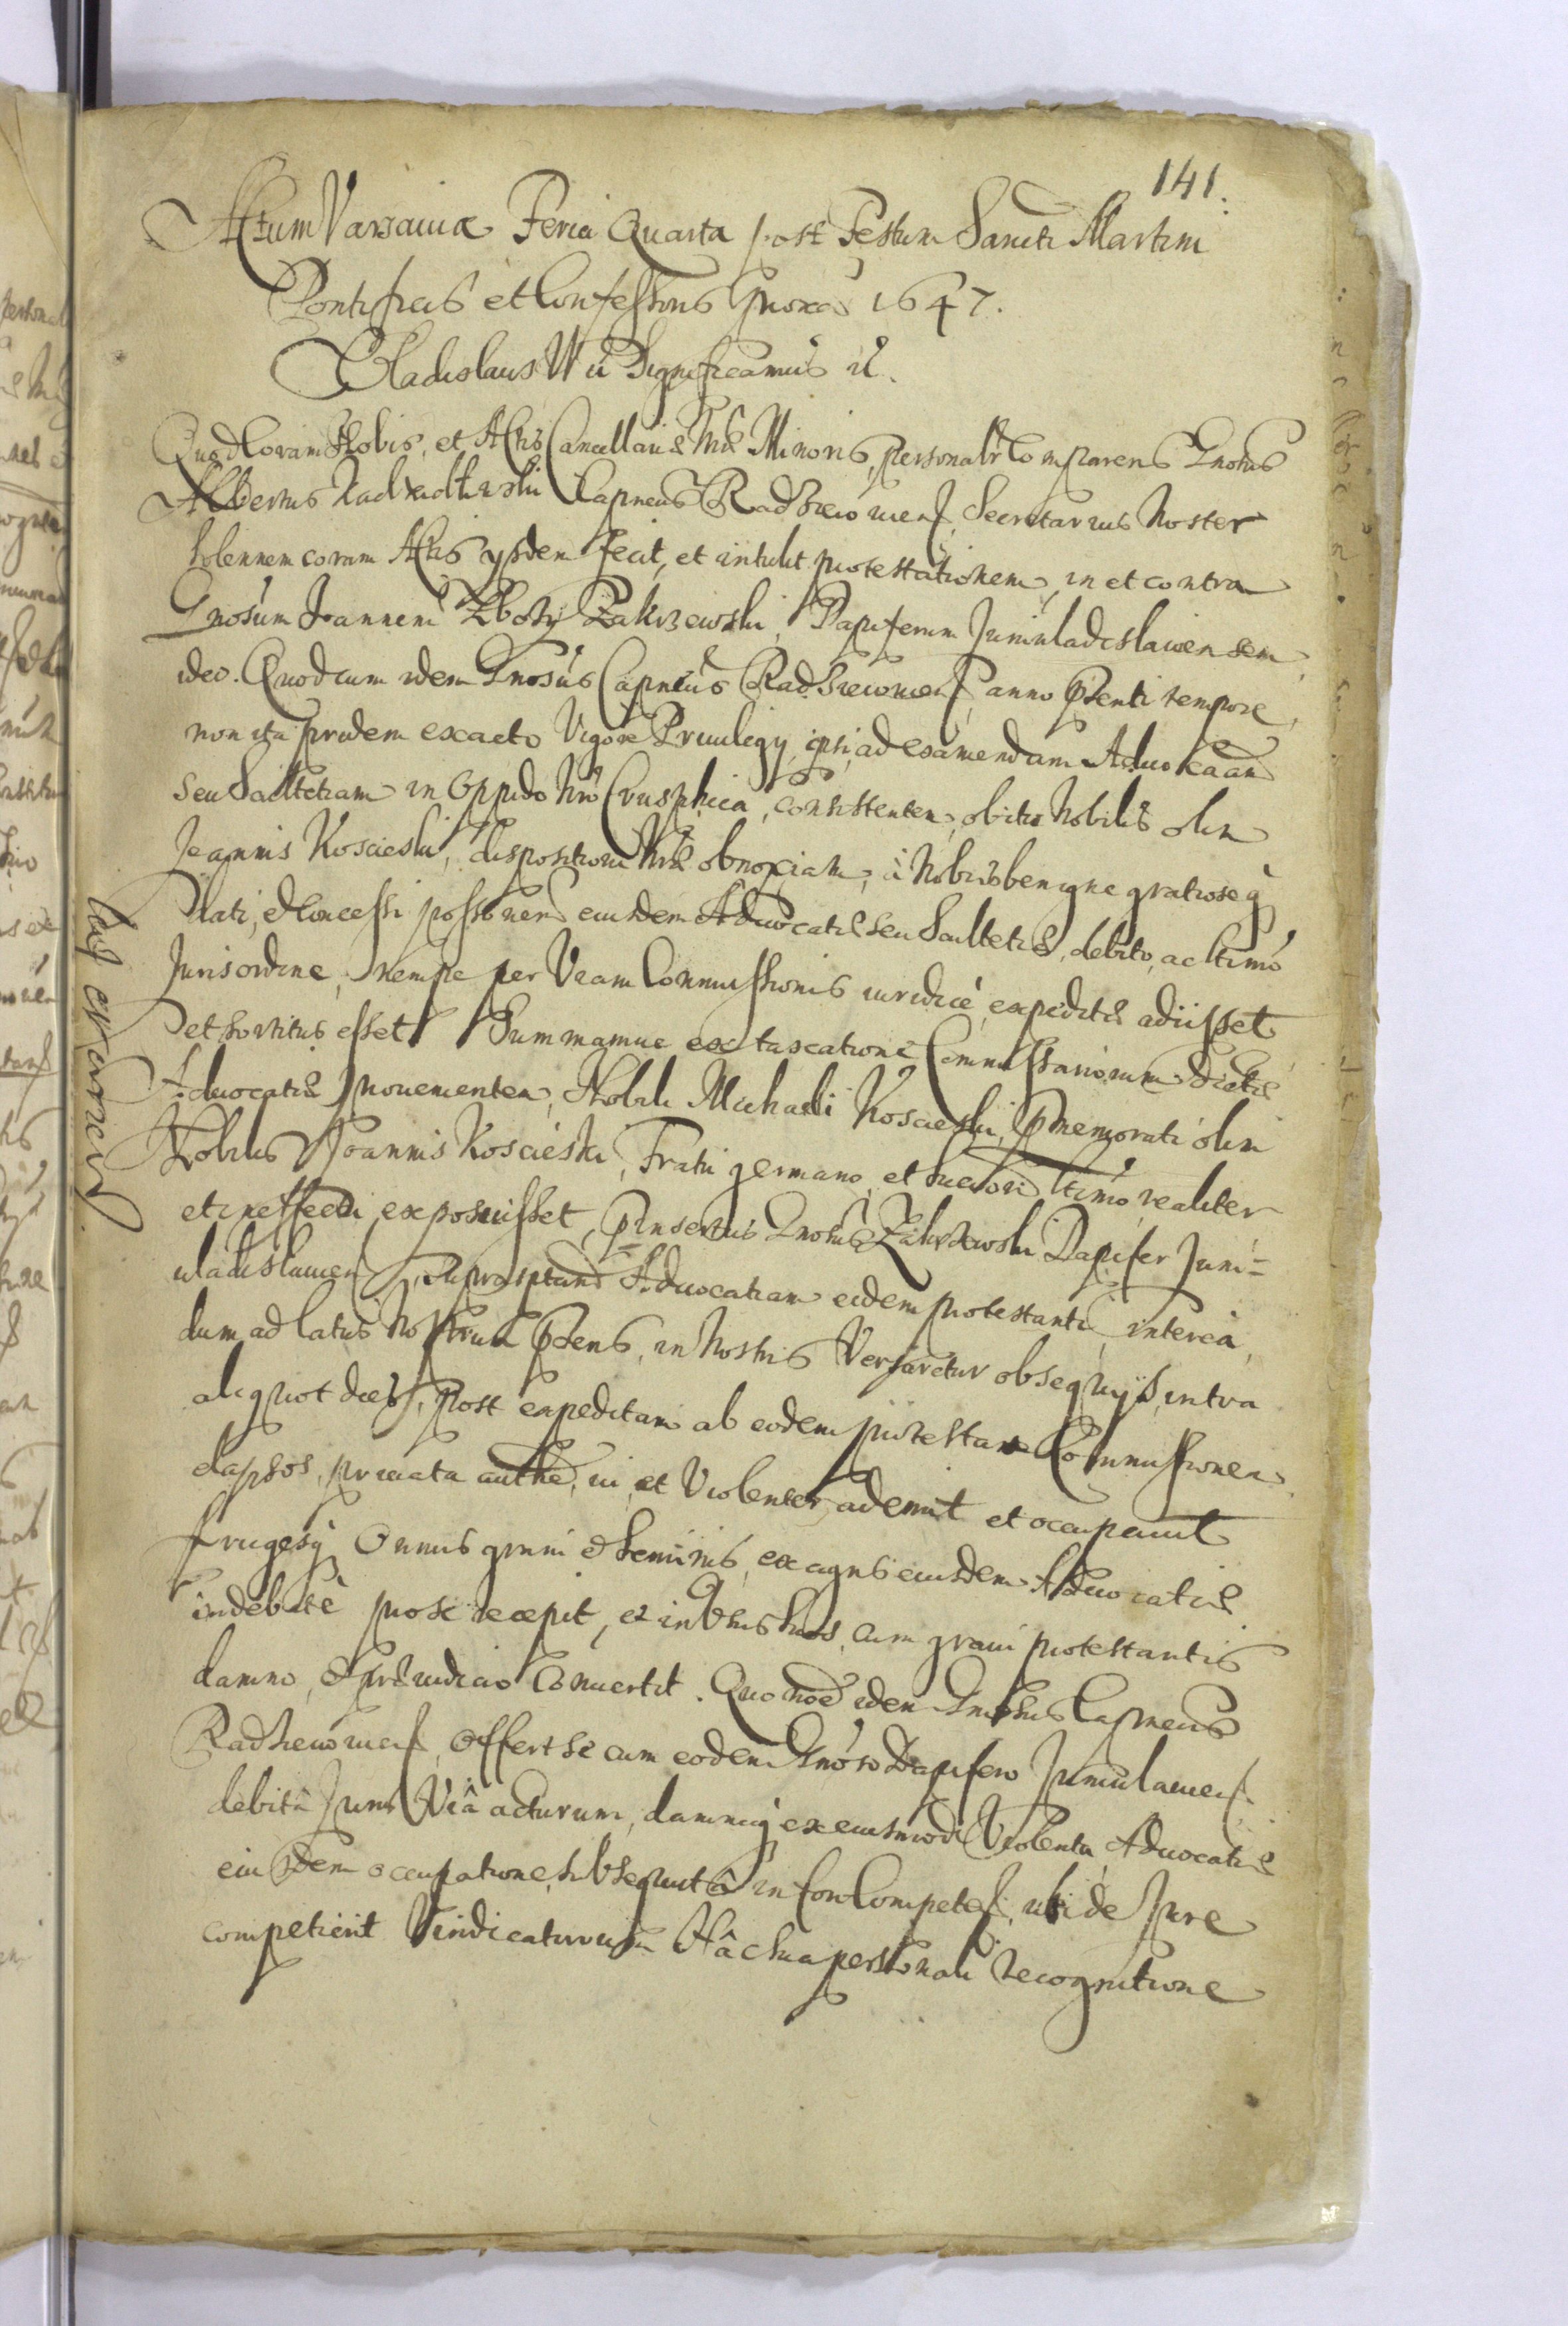 141.
Actum Varsaviæ Feria Quarta post Festum Sancti Martini
Pontificis et Confessoris proxa 1647.
Vladislaus IV ȣ Significamus ȣ.
Quod Coram Nobis, et Actis Cancellariæ Nræ Minoris, personalr Comparens Gnosus
Albertus Capneus Radzieiouien, Secretarius Noster
Solennem coram Actis ysdem fecit, et intulit protestationem, in et contra
Gnosum Joannem Zakrzewski, Dapiferum Juniuladislauiensem
ideo. Quod cum idem Gnosus Capneus Radzieiouien, anno pnti tempore,
non ita pridem exacto Vigore Priuilegij, ipsi, ad eximendam Aduocaam
Seu Scultetiam in Oppido Nro Crusphica, consistentem, obitu Nobilis olim
Joannis Koscieski, dispositioni Nræ obnoxiam, à Nobis benigne gratioseq
dati, et Concessi possonem eiusdem Aduocatiæ seu Scultetiæ, debito, ac ltimo
Juris ordine, nempe per Viam Commissionis iuridicè expeditæ adijsset
et sortitus esset Summamue ex taxatione Commissariorum dictæ
Aduocatiæ prouenientem, Nobili Michaeli Koscieski, pmemorati olim
Nobilis Joannis Koscieski, Fratri germano, et ltimo, realiter
et in effectu exposuisset, pinsertus Gnosus Zakrzewski Dapifer Juni=
uladislauien, suprasptam Aduocatiam eidem protestanti, interea,
dum ad latus Nostrum pdens, in Nostris Versaretur obsequijs, intra
aliquot dies, post expeditam ab eodem protestante Commissionem
elapsos, priuata authe, ui, et Violenter ademit et occupauit
frugesq Omnis grani et Seminis, ex agris eiusdem Aduocatiæ
indebitè pro se recepit, et in Vsus suos, cum graui protestantis
damno, et præiudicio Conuertit. Quo noe idem Gnosus Capneus
Radzieiouien, offert se cum eodem Gnoso Dapifero Juniulauien
debitâ Juris Viâ acturum, damnaq ex eiusmodi Violenta Aduocatiæ
eiusdem occupatione, subsequutâ in foro Competen, ubi de Jure
competierit Vindicaturum Hâc sua personali recognitione